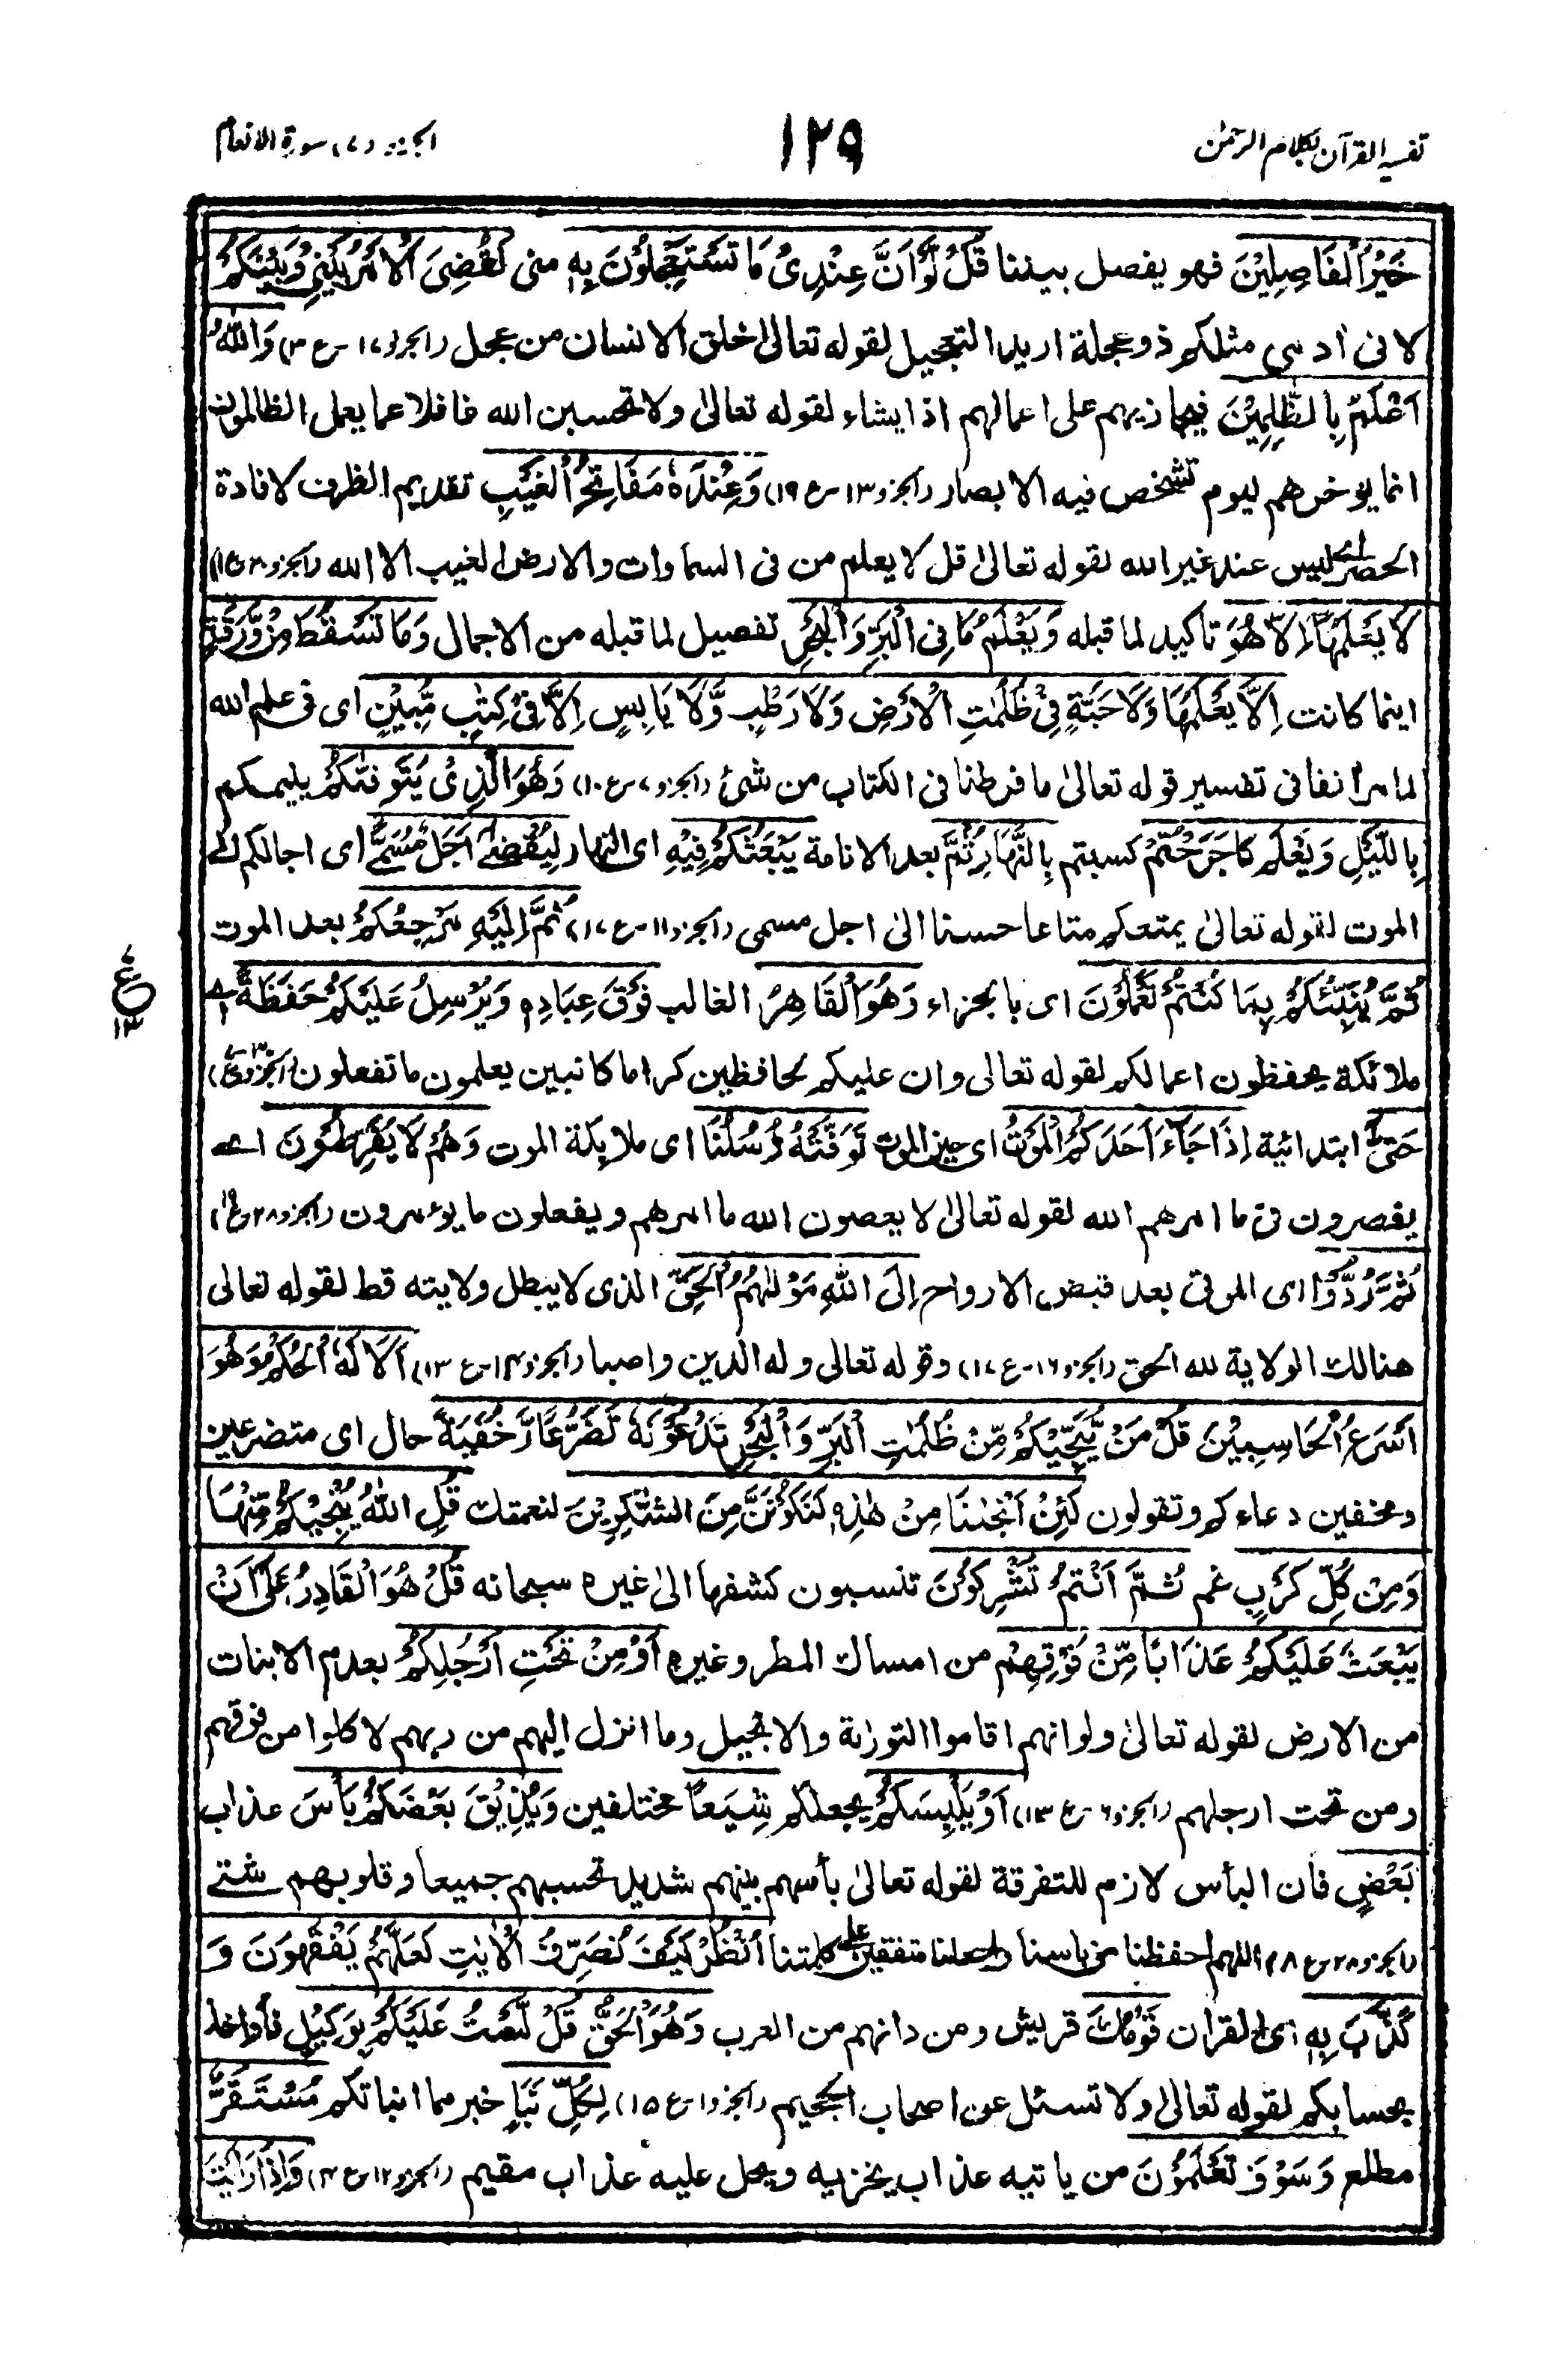 تفسير القرآن بكلام الرحمٰن
١٢٩
الجزء (٧) سورة الانعام
خَيْرُ الْفَاصِلِيْنَ فهو يفصل بيننا قُلْ لَّوْ اَنَّ عِنْدِىْ مَا تَسْتَعْجِلُوْنَ بِهٖ منى لَقُضِىَ الْاَمْرُ بَيْنِىْ وَبَيْنَكُمْ
لانى اٰدمى مثلكم ذو عجلة اريد التعجيل لقوله تعالىٰ خلق الانسان من عجل (الجزو ١٧ - ع ٣) وَاللّٰهُ
اَعْلَمُ بِالظّٰلِمِيْنَ فيجازيهم على اعمالهم اذا يشاء لقوله تعالىٰ ولا تحسبن الله غافلا عما يعمل الظالمون
انما يوخرهم ليوم تشخص فيه الابصار (الجزو ١٣ - ع ١٩) وَعِنْدَهٗ مَفَاتِحُ الْغَيْبِ تقديم الظرف لافادة
الحصر اى ليس عند غير الله لقوله تعالىٰ قل لا يعلم من فى السماوات والارض الغيب الا الله (الجزو ٢٠ ع ١)
لَا يَعْلَمُهَا اِلَّا هُوَ تاكيد لما قبله وَيَعْلَمُ مَا فِى الْبَرِّ وَالْبَحْرِ تفصيل لما قبله من الاجمال وَمَا تَسْقُطُ مِنْ وَّرَقَةٍ
اينما كانت اِلَّا يَعْلَمُهَا وَلَا حَبَّةٍ فِىْ ظُلُمٰتِ الْاَرْضِ وَلَا رَطْبٍ وَّلَا يَابِسٍ اِلَّا فِىْ كِتٰبٍ مُّبِيْنٍ اى فى علم الله
لما مر اٰنفا فى تفسير قوله تعالىٰ ما فرطنا فى الكتاب من شئ (الجزو ٧ - ع ١٠) وَهُوَ الَّذِىْ يَتَوَفّٰىكُمْ ينيمكم
بِاللَّيْلِ وَيَعْلَمُ مَا جَرَحْتُمْ كسبتم بِالنَّهَارِ ثُمَّ بعد الانامة يَبْعَثُكُمْ فِيْهِ اى النهار لِيُقْضٰى اَجَلٌ مُّسَمًّى اى اجالكم الى
الموت لقوله تعالىٰ يمتعكم متاعا حسنا الىٰ اجل مسمى (الجزو ١١ - ع ١٧) ثُمَّ اِلَيْهِ مَرْجِعُكُمْ بعد الموت
ثُمَّ يُنَبِّئُكُمْ بِمَا كُنْتُمْ تَعْمَلُوْنَ اى بالجزاء وَهُوَ الْقَاهِرُ الغالب فَوْقَ عِبَادِهٖ وَيُرْسِلُ عَلَيْكُمْ حَفَظَةً اى
ع ١٣
ملائكة يحفظون اعمالكم لقوله تعالى وان عليكم لحافظين كراما كاتبين يعلمون ما تفعلون
حَتّٰى ابتدائية اِذَا جَاءَ اَحَدَكُمُ الْمَوْتُ اى حين الموت تَوَفَّتْهُ رُسُلُنَا اى ملائكة الموت وَهُمْ لَا يُفَرِّطُوْنَ اى
يقصرون فى ما امرهم الله لقوله تعالىٰ لا يعصون الله ما امرهم ويفعلون ما يؤمرون (الجزو ٢٨ - ع ١٩)
ثُمَّ رُدُّوْا اى الموتى بعد قبض الارواح اِلَى اللّٰهِ مَوْلٰىهُمُ الْحَقِّ الذى لا يبطل ولايته قط لقوله تعالى
هنالك الولاية لله الحق (الجزو ١٦ - ع ١٧) وقوله تعالى وله الدين واصبا (الجزو ١٤ - ع ١٣) اَلَا لَهُ الْحُكْمُ وَهُوَ
اَسْرَعُ الْحَاسِبِيْنَ قُلْ مَنْ يُّنَجِّيْكُمْ مِّنْ ظُلُمٰتِ الْبَرِّ وَالْبَحْرِ تَدْعُوْنَهٗ تَضَرُّعًا وَّخُفْيَةً حال اى متضرعين
ومخفين دعاءكم وتقولون لَئِنْ اَنْجٰىنَا مِنْ هٰذِهٖ لَنَكُوْنَنَّ مِنَ الشّٰكِرِيْنَ لنعمتك قُلِ اللّٰهُ يُنْجِيْكُمْ مِّنْهَا
وَمِنْ كُلِّ كَرْبٍ غم ثُمَّ اَنْتُمْ تُشْرِكُوْنَ تنسبون كشفها الىٰ غيره سبحانه قُلْ هُوَ الْقَادِرُ عَلٰى اَنْ
يَبْعَثَ عَلَيْكُمْ عَذَابًا مِّنْ فَوْقِهِمْ من امساك المطر وغيره اَوْ مِنْ تَحْتِ اَرْجُلِكُمْ بعدم الانبات
من الارض لقوله تعالىٰ ولو انهم اقاموا التوراة والانجيل وما انزل اليهم من ربهم لاكلوا من فوقهم
ومن تحت ارجلهم (الجزو ٦ - ع ١٣) اَوْ يَلْبِسَكُمْ يجعلكم شِيَعًا مختلفين وَيُذِيْقَ بَعْضَكُمْ بَأْسَ عذاب
بَعْضٍ فان البأس لازم للتفرقة لقوله تعالىٰ بأسهم بينهم شديد تحسبهم جميعا وقلوبهم شتى
(الجزو ٢٨ - ع ٨) اللهم احفظنا من باسنا واجعلنا متفقين على كلمتنا اُنْظُرْ كَيْفَ نُصَرِّفُ الْاٰيٰتِ لَعَلَّهُمْ يَفْقَهُوْنَ وَ
كَذَّبَ بِهٖ اى القران قَوْمُكَ قريش ومن دانهم من العرب وَهُوَ الْحَقُّ قُلْ لَّسْتُ عَلَيْكُمْ بِوَكِيْلٍ فأواخذ
بحسابكم لقوله تعالىٰ ولا تسئل عن اصحاب الجحيم (الجزو ١ - ع ١٥) لِكُلِّ نَبَاٍ خبر مما انباتكم مُسْتَقَرٌّ
مطلع وَسَوْفَ تَعْلَمُوْنَ من ياتيه عذاب يخزيه ويحل عليه عذاب مقيم (الجزو ١٢ - ع ٤) وَاِذَا رَاَيْتَ